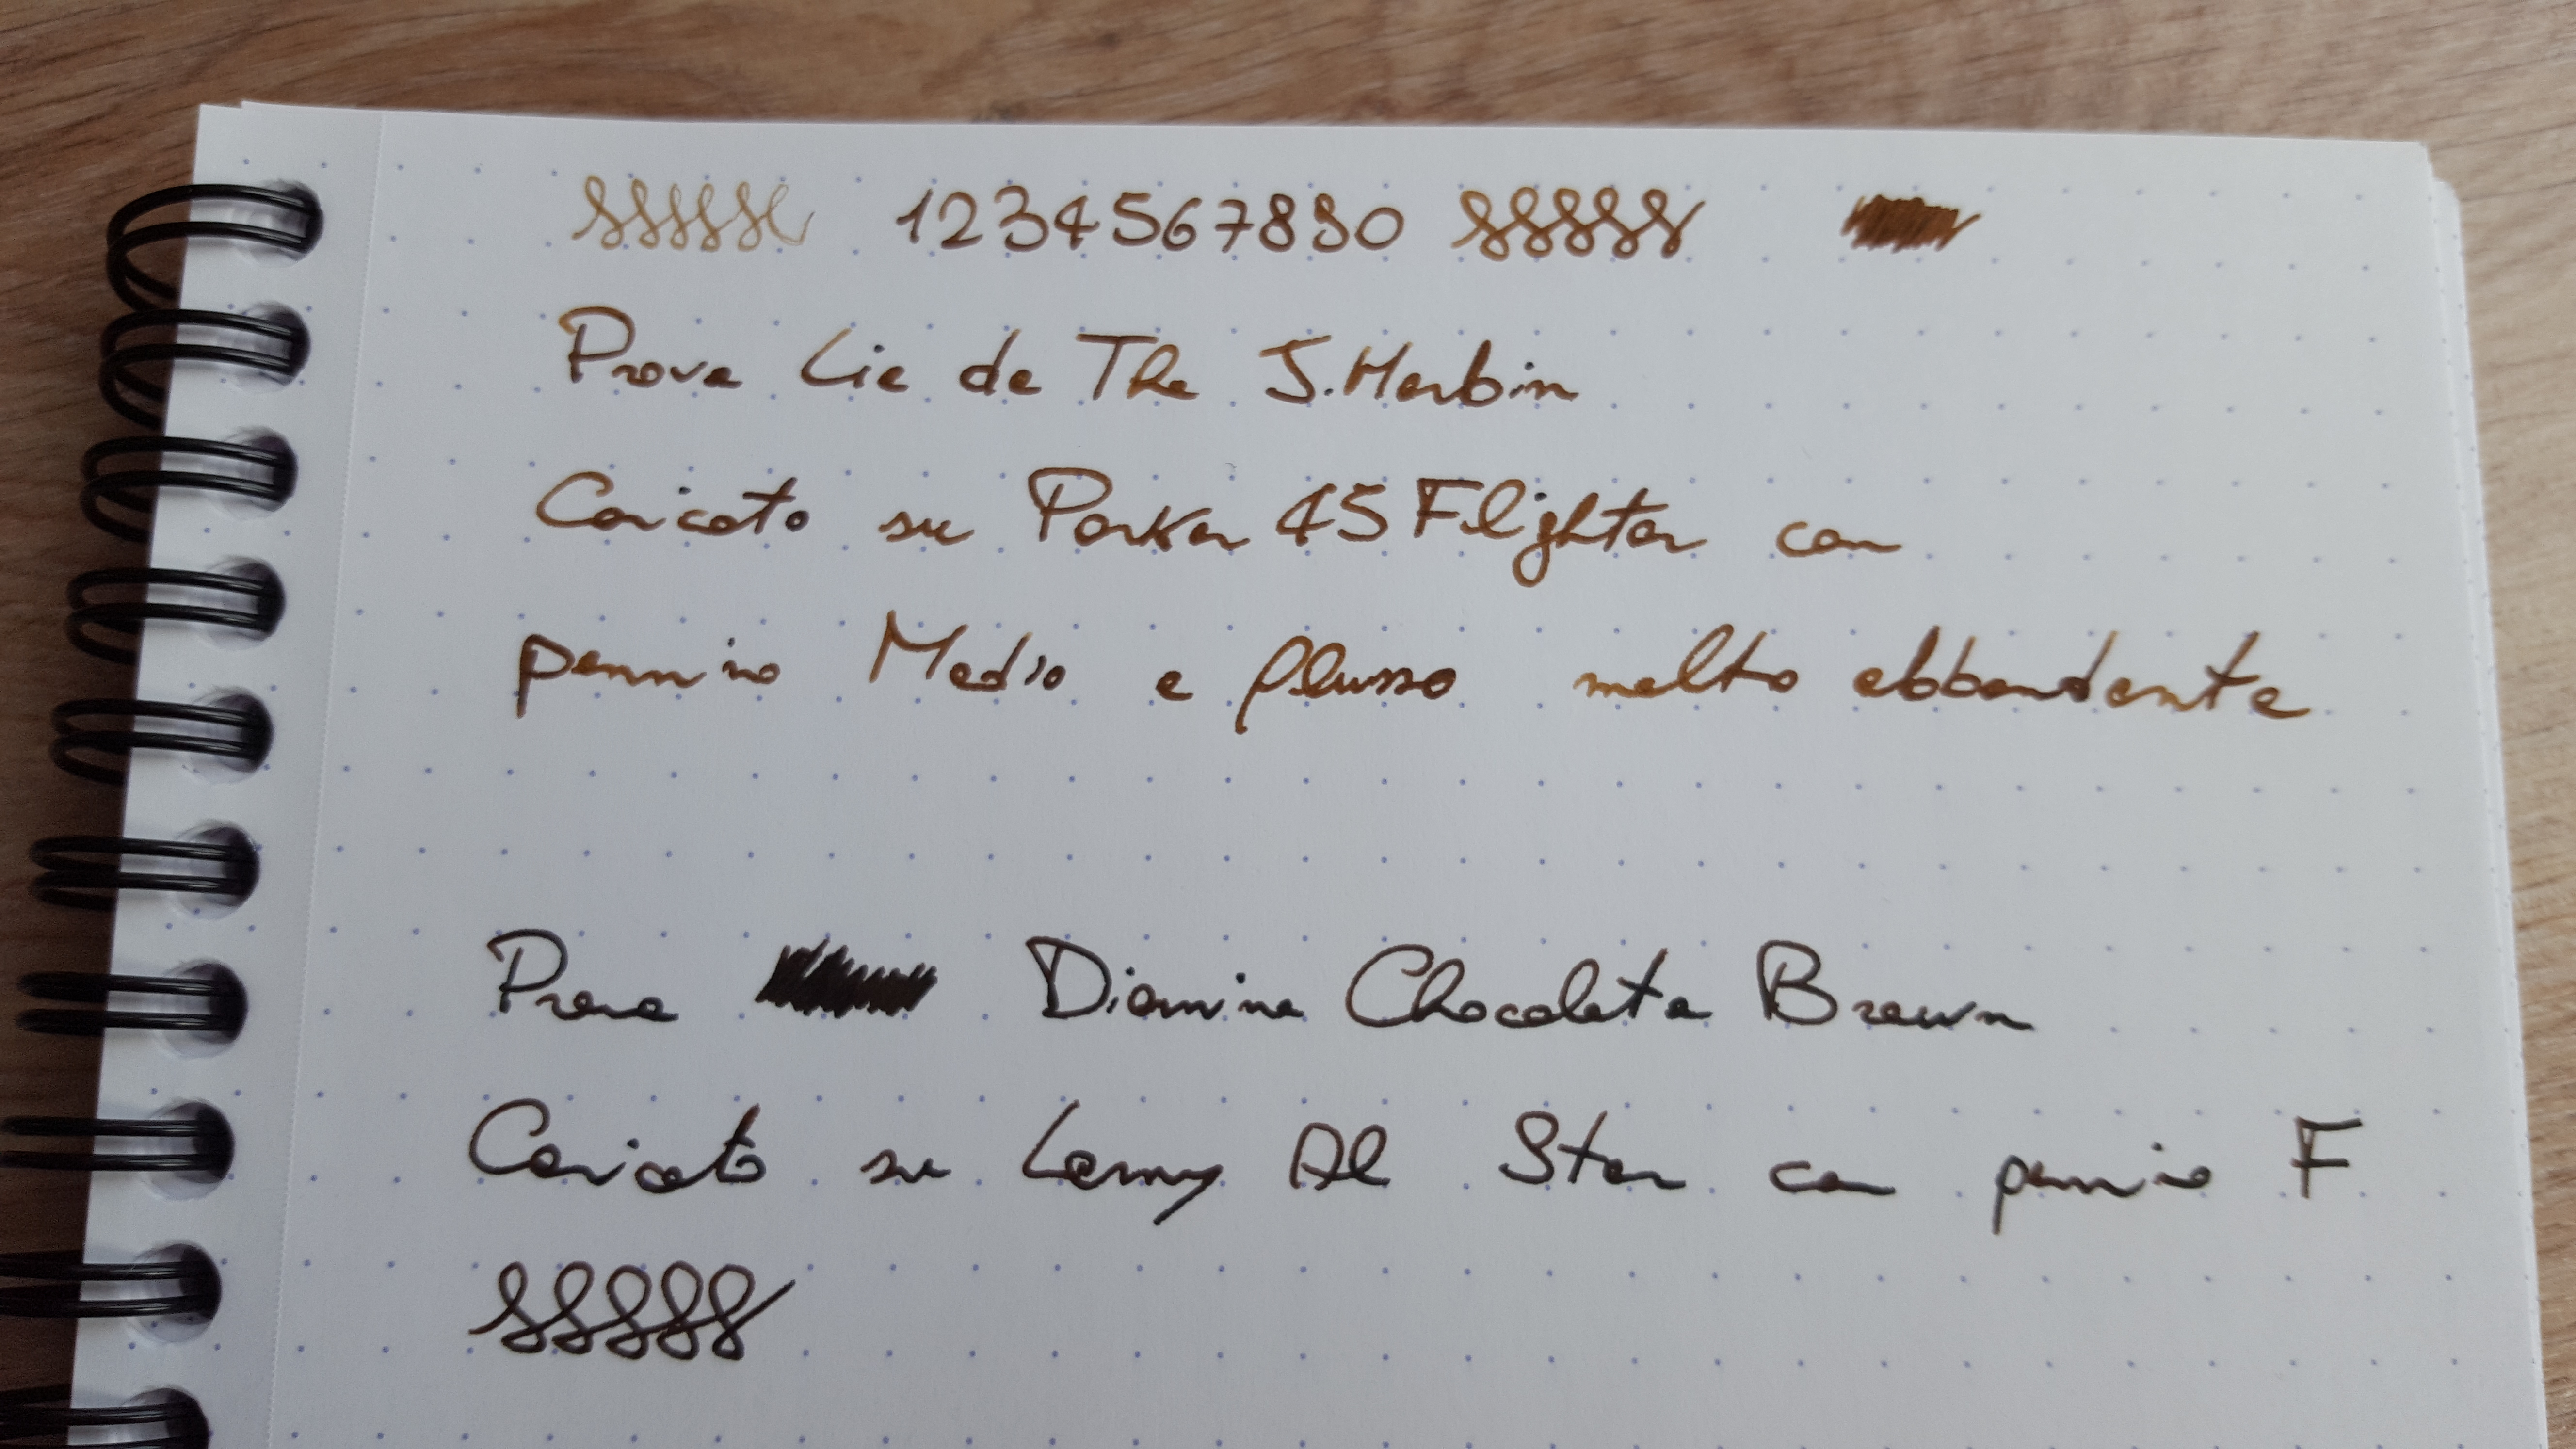 1234567890
Prova Lie de The J.Herbin
Caricato su Parker 45 Flighter con
pennino Medio e flusso molto abbondante
Prova Diamine Chocolate Brown
Caricato su Lamy Al Star con pennino F